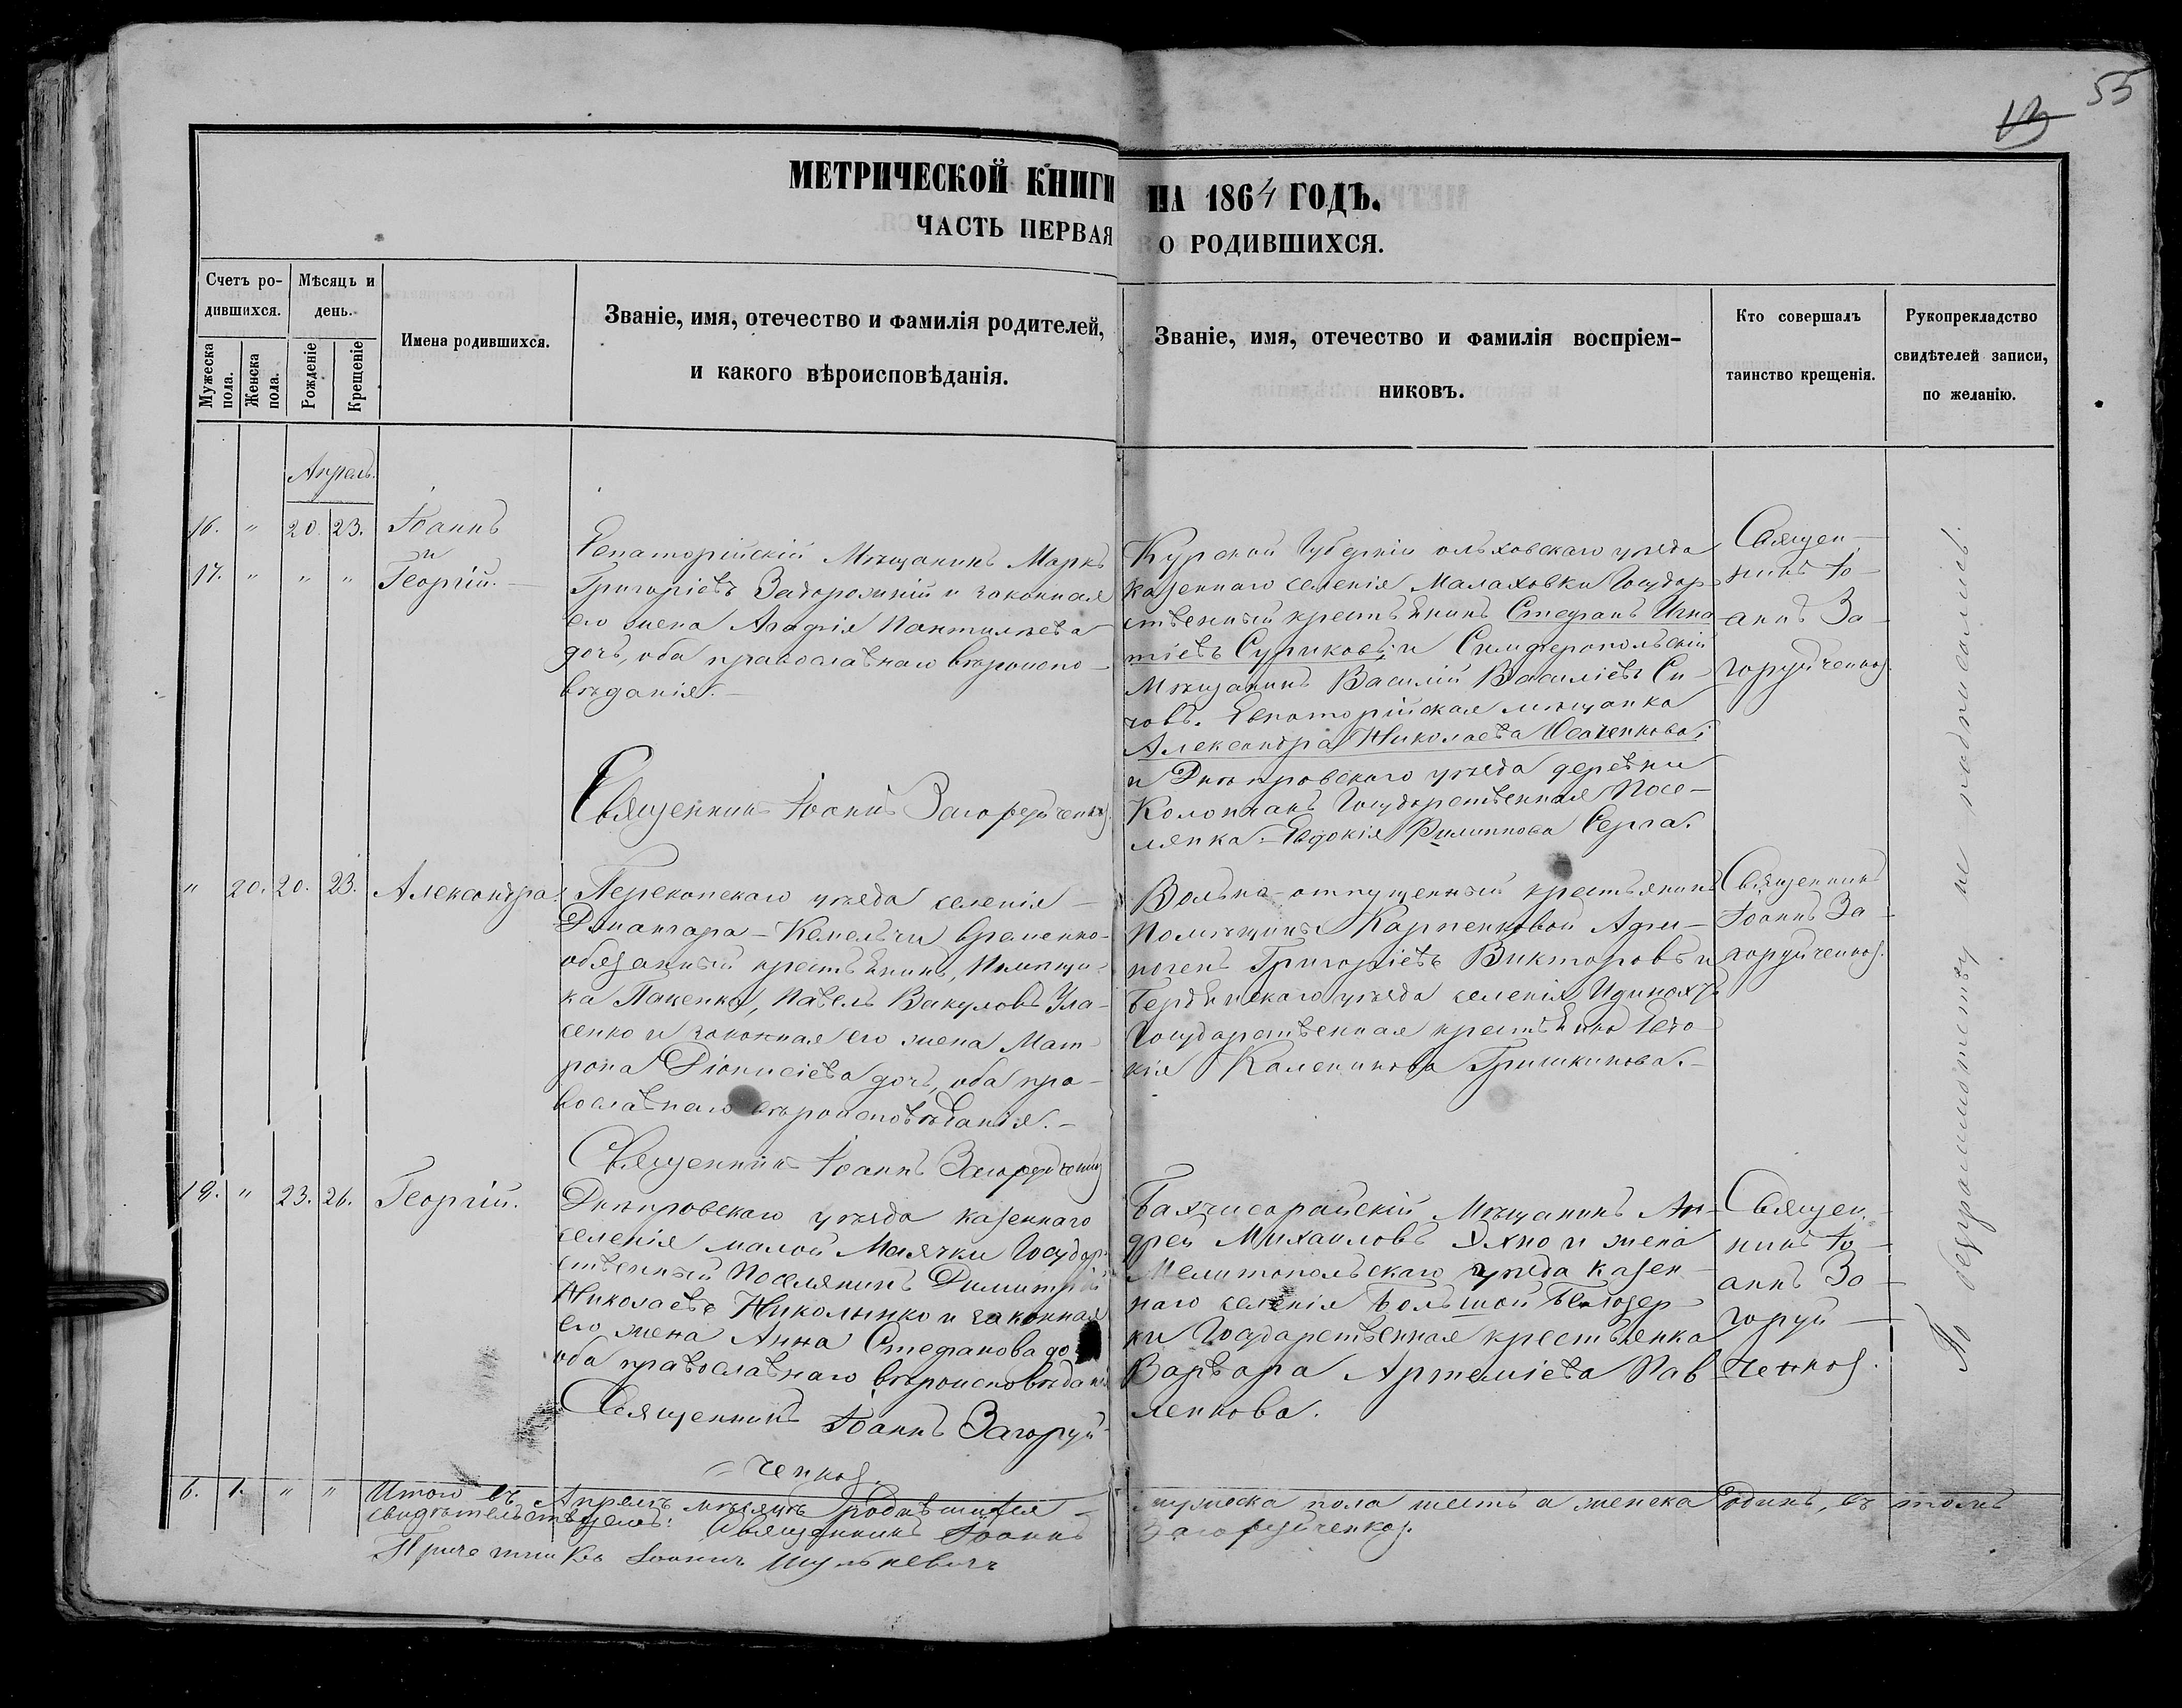 55
13
МЕТРИЧЕСКОЙ КНИГИ НА 1864 ГОДЪ.
ЧАСТЬ ПЕРВАЯ О РОДИВШИХСЯ.
Счетъ ро-
дившихся.
Мужеска
пола.
Женска
пола.
Мѣсяцъ и
день.
Рожденіе
Крещеніе
Имена родившихся.
Званіе, имя, отечество и фамилія родителей,
и какого вѣроисповѣданія.
Званіе, имя, отечество и фамилія воспріем-
никовъ.
Кто совершалъ
таинство крещенія.
Рукоприкладство
свидѣтелей записи,
по желанію.
Апрель.
16. " 20. 23. Іоаннъ
и
17. " " " Георгій.
Евпаторійскій Мѣщанинъ Маркъ
Григоріевъ Задорожній и законная
его жена Агафія Пантилѣева
дочь, оба православнаго вѣроиспо-
вѣданія.
Священникъ Іоаннъ Загоруйченко
Курской Губерніи ольховскаго уѣзда
казеннаго селенія Малаховки Государ-
ственный крестьянинъ Стефанъ Игна
тіевъ Суриковъ; и Симферопольскій
Мѣщанинъ Василій Василіевъ Си-
човъ. Евпаторійская мѣщанка
Александра Николаева Исаченкова;
и Днѣпровскаго уѣзда деревни
Колончакъ Государственная Посе-
лянка Евдокія Филиппова Серга.
Священ-
никъ Іо-
аннъ За-
горуйченко.
" 20. 20. 23. Александра.
Перекопскаго уѣзда селенія
Джангара-Кемельчи временно-
обязанный крестьянинъ, Помѣщи-
ка Паценко, Павелъ Вакуловъ Ула-
сенко и законная его жена Мат-
рона Діонисіева дочь, оба пра-
вославнаго вѣроисповѣданія.
Священникъ Іоаннъ Загоруйченко
Вольно-отпущенный крестьянинъ
Помѣщицы Карпенковой Афи-
ногенъ Григоріевъ Викторовъ и
Бердянскаго уѣзда селенія
Государственная крестьянка Евдо-
кія Каленикова Гришкинова.
Священникъ
Іоаннъ За-
горуйченко.
19. " 23. 26. Георгій.
Днѣпровскаго уѣзда казеннаго
селенія малой Маячки Государ-
ственный Поселянинъ Димитрій
Николаевъ Николынко и законная
его жена Анна Стефанова до
оба православнаго вѣроисповѣдані
Священникъ Іоаннъ Загоруй-
ченко.
Бахчисарайскій Мѣщанинъ Ан-
дрей Михаиловъ Яхно и жена
Мелитопольскаго уѣзда казен-
наго селенія Большой Белозер-
ки Государственная крестьянка
Варвара Артеміева Пав
ленкова.
Священ-
никъ Іо-
аннъ За-
горуй-
ченко.
По безграмотству не подписались.
6. 1. " " Итого въ Апрелѣ мѣсяцѣ родившихся мужеска пола шесть а женска одинъ, въ томъ
свидѣтельствуемъ: Священникъ Іоаннъ Загоруйченко.
Причетникъ Іоаннъ Шулькевичъ